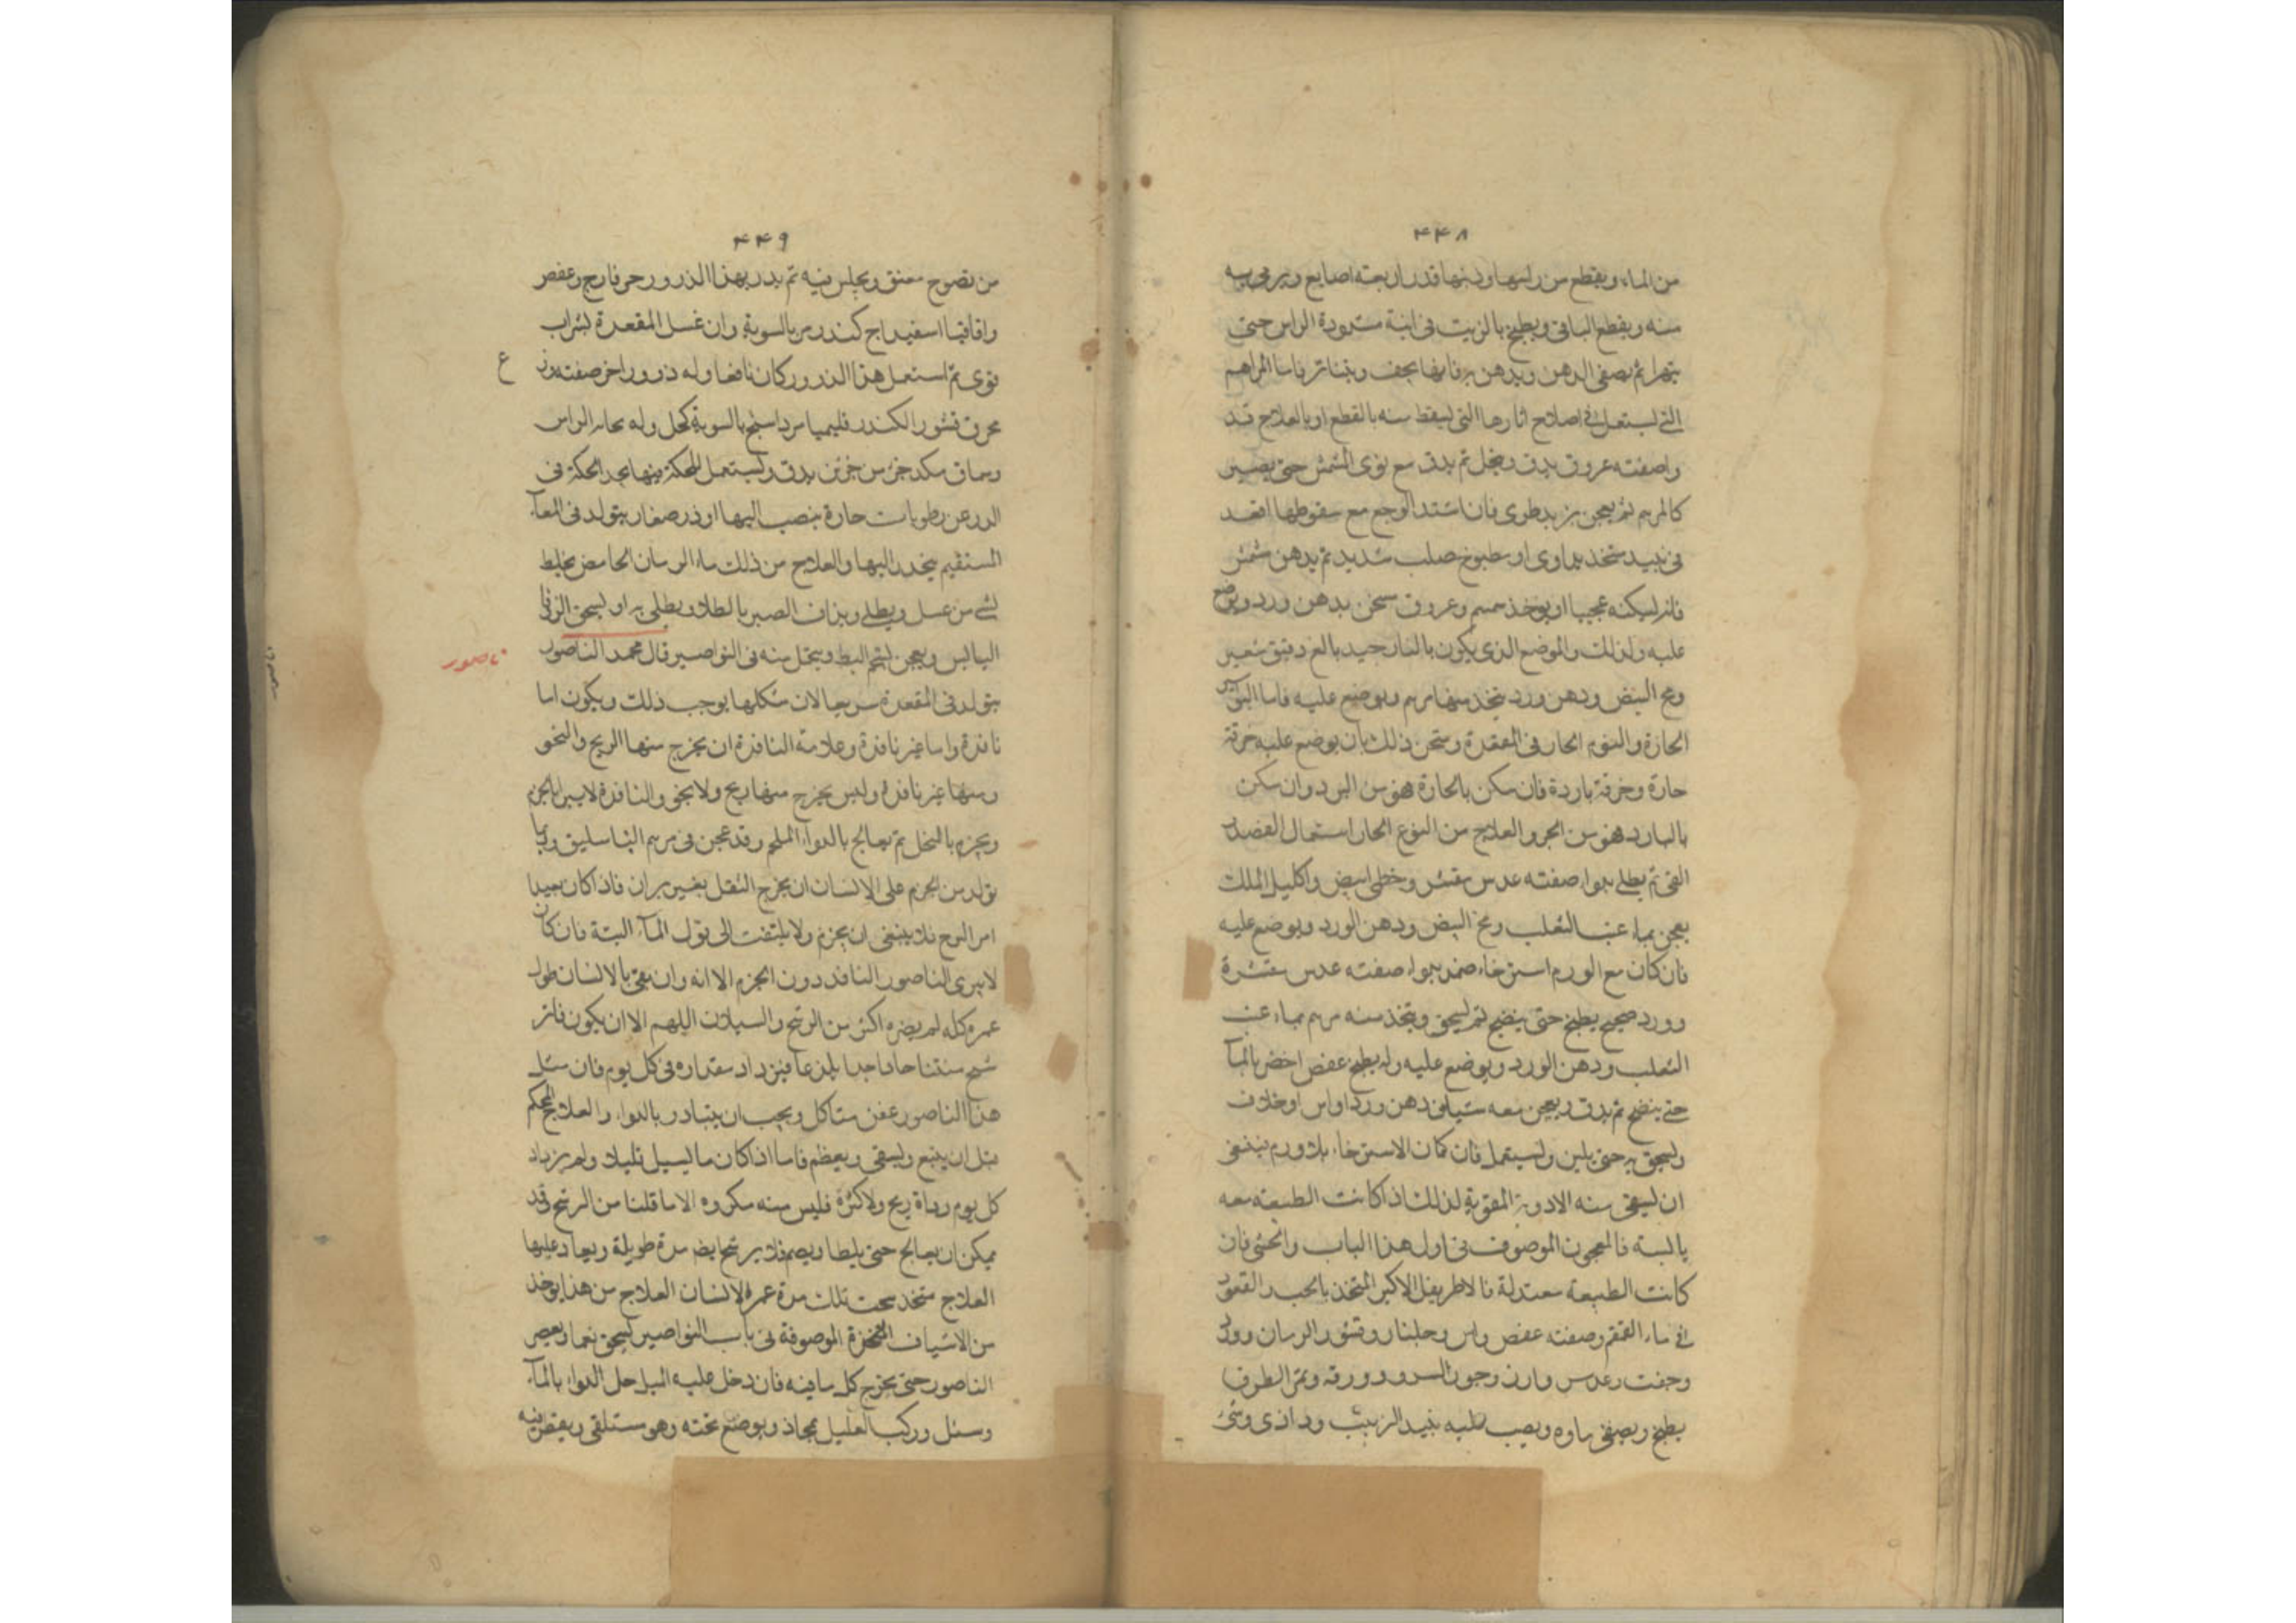 ۴۴۸
من الماء ويقطع من راسها وذنبها قدر اربعته اصابع ويرمى به
منه ويقطع الباقى ويطبخ بالزيت فى انية مسدودة الراس حتى
يتهرا ثم يصفى الدهن ويدهن به فانها يجف ويتناثر فاما المراهم
التى يستعمل فى اصلاح اثارها التى يسقط منه بالقطع او بالعلاج
واصفته عروق يدق وينخل ثم يدق مع نوى المشمش حتى يصير
كالمرهم ثم يعجن فان اشتد الوجع مع سقوطها اقعد
فى نبيد متخذ او مطبوخ صلب شديد ثم يدهن مشمش
فانه ليسكنه عجيبا او يوخذ سمسم وعروق سحق بدهن ورد ويوضع
عليه ولذلك والموضع الذى يكون بالنار جيد بالغ دقيق شعير
ومح البيض ودهن ورد يتخذ منها مرهم ويوضع عليه فاما البواسير
الحارة والورم الحار فى المقعدة ومتحن ذلك بان يوضع عليه خرقة
حارة وخرقة باردة فان سكن بالحارة فهو من البرد وان سكن
بالبارد فهو من الحر والعلاج من النوع الحار استعمال الفصد
القى ثم يطلى بدواء صفته عدس مقشر وخطمى ابيض واكليل الملك
يعجن بماء عنب الثعلب ومح البيض ودهن الورد ويوضع عليه
فان كان مع الورم استرخاء ضمد بدواء صفته عدس مقشرة
وورد صحيح يطبخ حتى ينضج ثم يسحق ويتخذ منه مرهم بماء عنب
الثعلب ودهن الورد ويوضع عليه وله يطبخ عفص اخضر بالماء
حتى ينضج ثم يدق ويعجن معه شيا من دهن ورد او اس او خلاف
ويسحق به حتى يلين ويستعمل فان كان الاسترخاء بلا ورم ينبغى
ان يسقى منه الادوية المقوية لذلك اذا كانت الطبيعته معه
يابسته فالمعجون الموصوف فى اول هذا الباب والحسى فان
كانت الطبيعة معتدلة فالاطريفل الاكبر المتخذ بالخبث والقعود
فى ماء القمقم وصفته عفص واس وجلنار وقشور الرمان وورد
وجفت وعدس وارز وجوز السرو وورقه وثمر الطرفا
يطبخ ويصفى ماوه ويصب عليه نبيد الزبيب وداذى وشى
۴۴۹
من نضوح معتق ويجلس فيه ثم يذر بهذا الذرور وعفص
واقاقيا اسفيداج كندر مر بالسوية وان غسل المقعدة بشراب
قوى ثم استعمل هذا الذرور كان نافعا وله ذرور اخر صفته ع
محرق قشور الكندر قليميا مرداسنج بالسوية كحل وله
وسماق مكد جزء من جزئين يدق ويستعمل للحكة الحكة فى
الدبر عن رطوبات حارة ينصب اليها او ذر صغار يتولد فى المعاء
المستقيم ينحدر اليها والعلاج من ذلك ماء الرمان الحامض يخلط
بشى من عسل ويطلى ويذاف الصبر بالطلاء ويطلى به او يسحق الزوفا
اليابس ويعجن بشحم البط ويتحمل منه فى النواصير قال محمد الناصور
ناصور
يتولد فى المقعدة سريعا لان شكلها يوجب ذلك ويكون اما
نافذة واما غير نافذة وعلامة النافذة ان يخرج منها الريح والنجو
ومنها غير نافذة وليس يخرج منها ريح ولا نجو والنافذة لا يبرا بالخزم
ويخزم بالنخل ثم يعالج بالدواء الملحم وقد عجن فى مرهم الباسليق وربما
تولد من الخزم على الانسان ان يخرج الثفل بغير بران فاذا كان بعيدا
امر الوح فلا ينبغى ان يخزم ولا يلتفت الى قول الماء البتة فان كان
لا يبرى الناصور النافذ دون الخزم الا انه وان بقى بالانسان طول
عمره كله لم يضره اكثر من الرشح والسيلان اللهم الا ان يكون فانه
شح منتنا حادا جدا يلذعا فيزداد مقداره فى كل يوم فان مثل
هذا الناصور عفن متاكل ويجب ان يتبادر بالدواء والعلاج المحكم
قبل ان يتبع ويسقى ويعظم فاما اذا كان ما يسيل قليلا ولم يزداد
كل يوم رداة ريح ولا كثرة فليس منه مكروه الا ما قلنا من الرشح قد
يمكن ان يعالج حتى يلطا ويضم فلا يرشح ايض مدة طويلة ويعاد عليها
العلاج متخذ تحت تلك مدة عمره الانسان العلاج من هذا يوخذ
من الاشياف المخزة الموصوفة فى باب النواصير يسحق نعما ويعصر
الناصور حتى يخرج كل ما فيه فان دخل عليه الميل حل الدواء بالماء
وسئل وركب العليل مجاذ ويوضع تحته وهو مستلقى ويقطر فيه